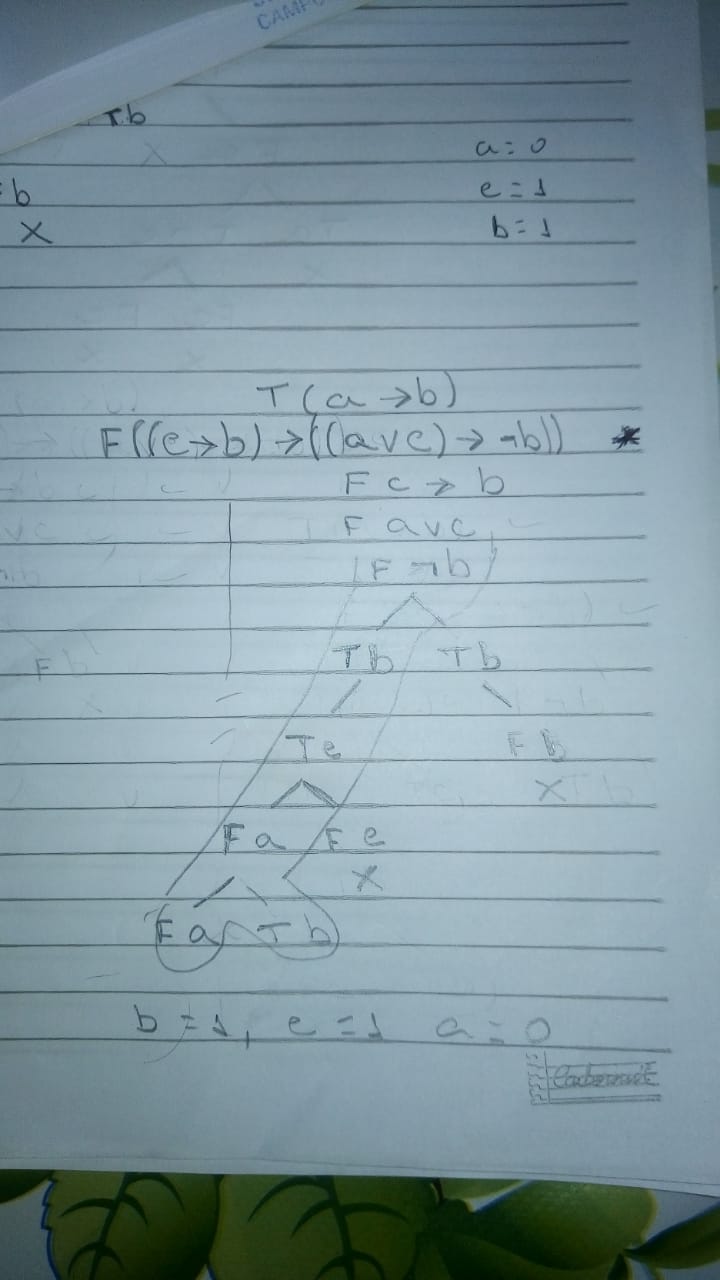 CAMP
Tb
a=0
b
e=1
X
b=1
T(a→b)
F((c→b)→((avc)→¬b)) *
F c → b
F avc
F ¬b
Tb Tb
F b
Te F b
X
Fa Fe
X
Fa Tb
b=1, e=1 a=0